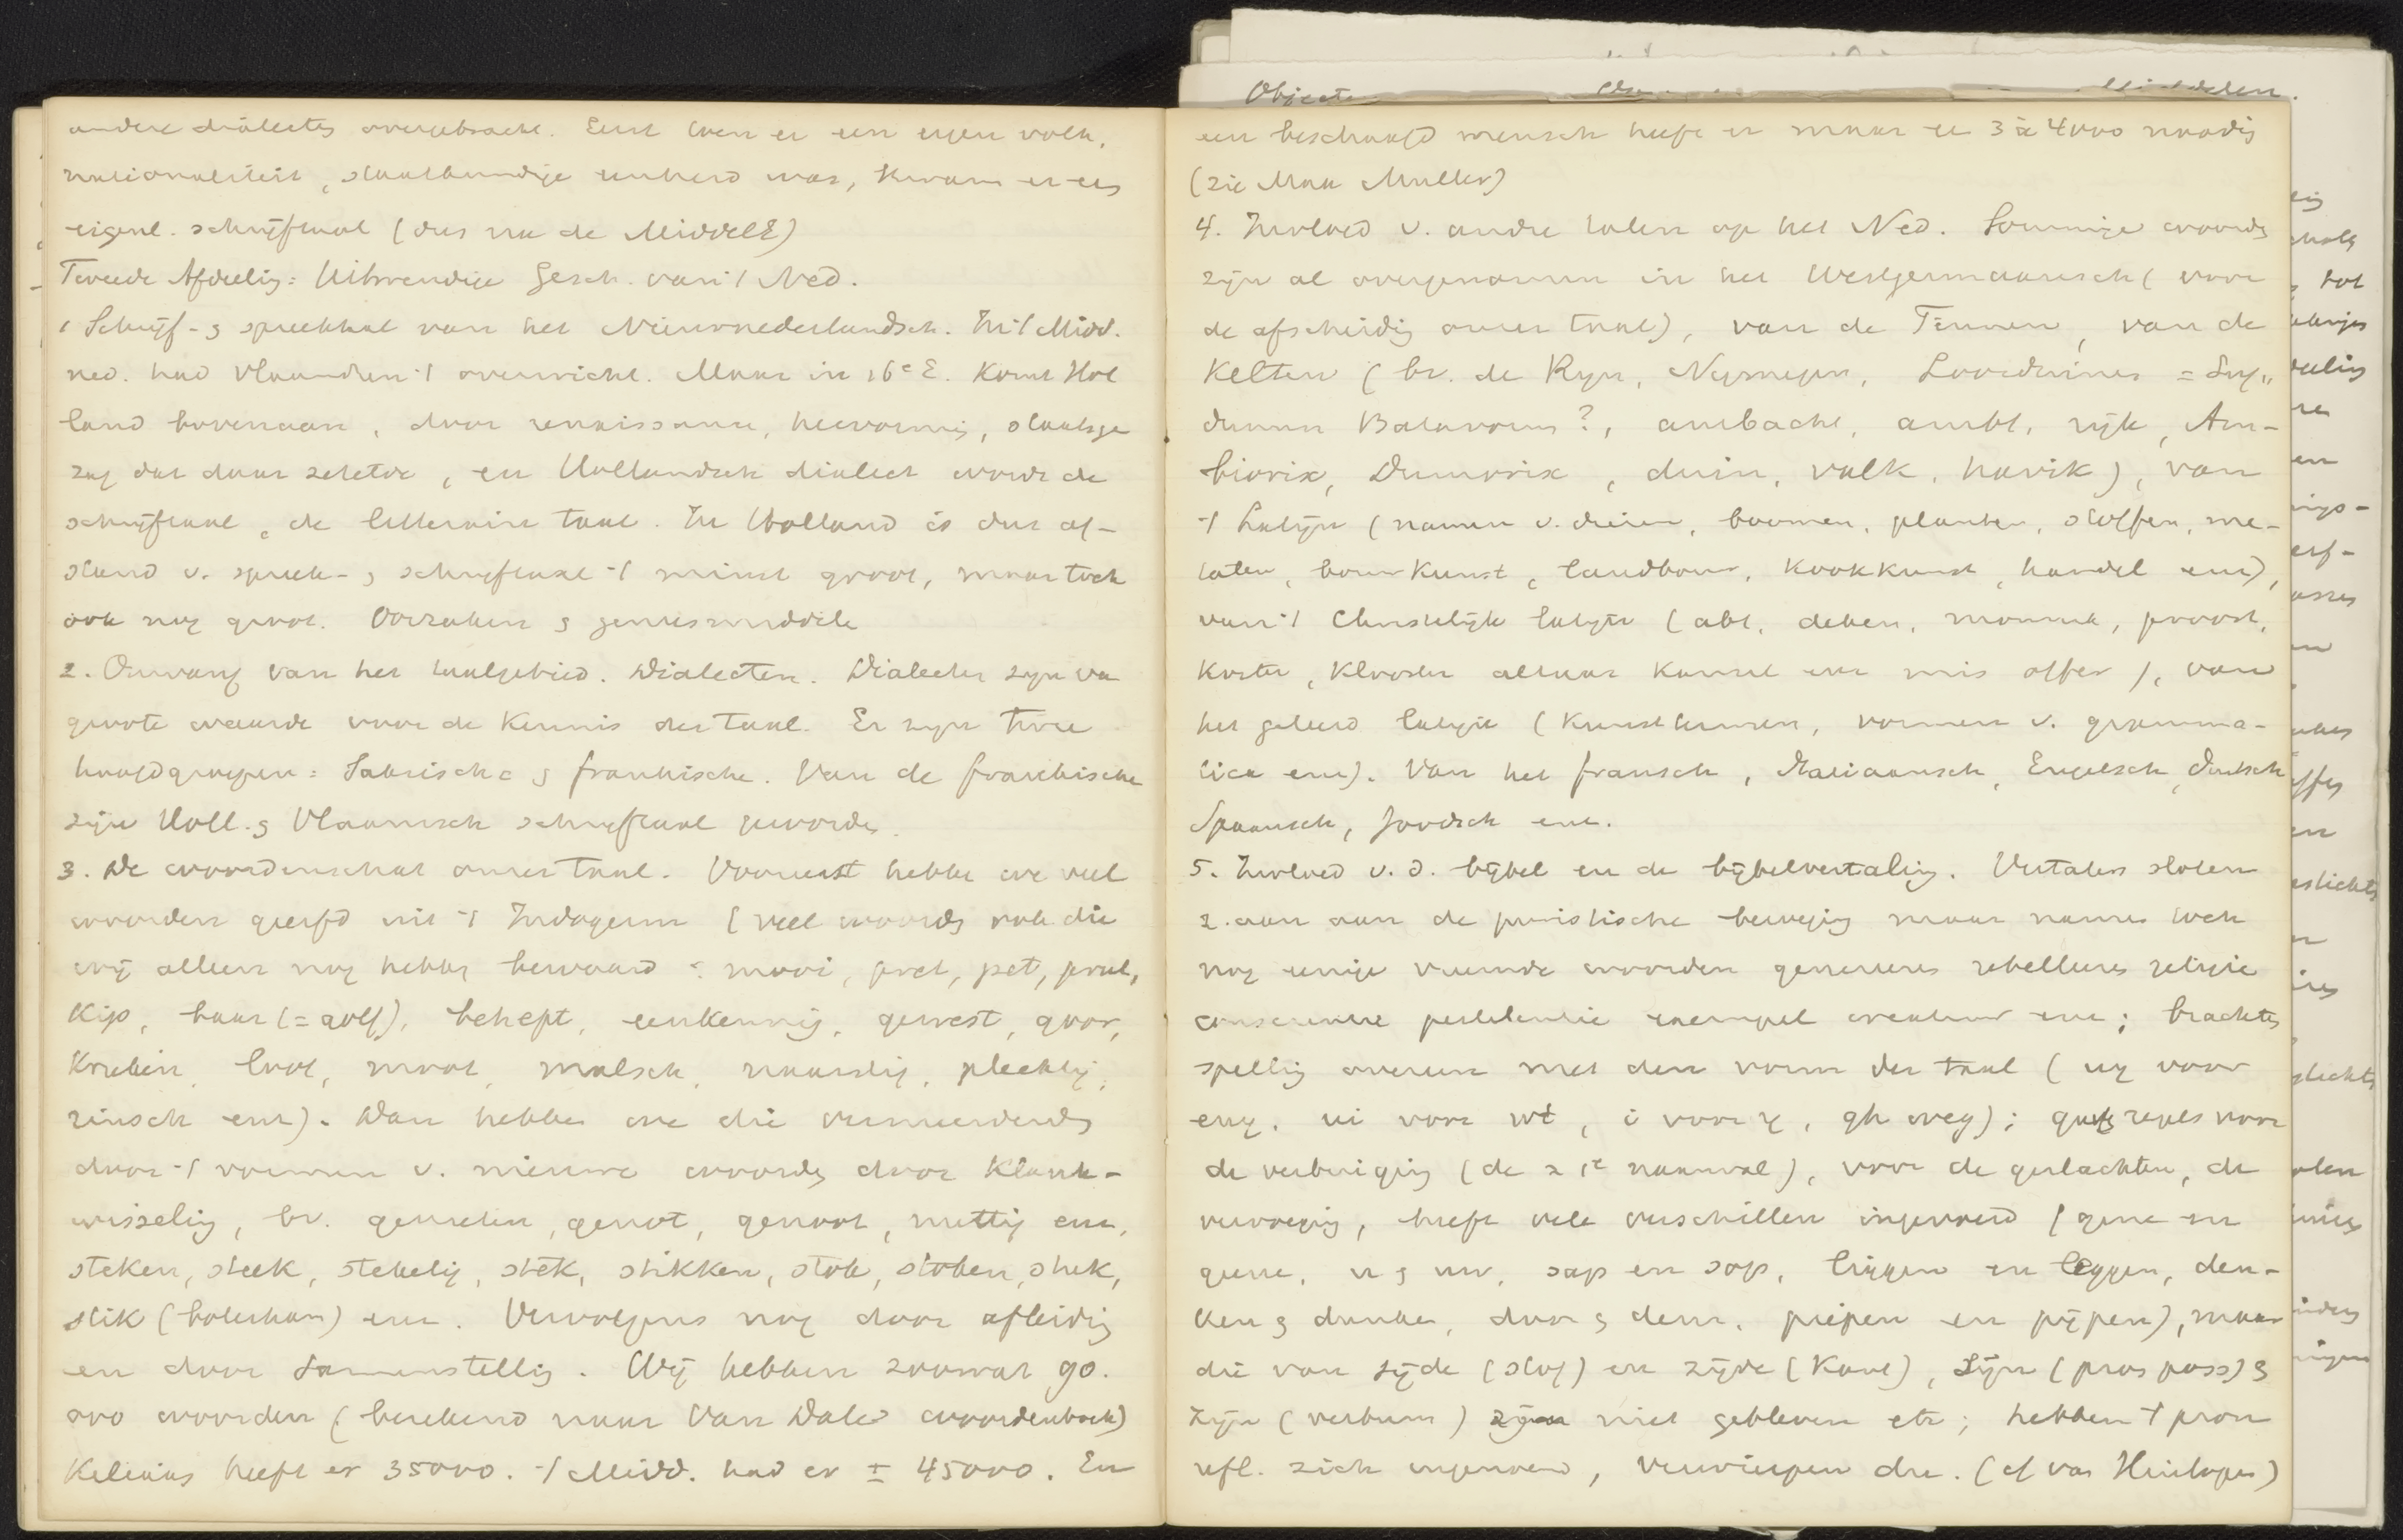 andere dialectes overgebracht. Eerst toen er een eigen volk,
nationaliteit, staatkundige eenheid was, kwam er een
eigenl. schrijftaal (dus na de MiddelE)
Tweede Afdeelig: Uitwendige Gesch. van 't Ned.
1 Schrijf- & spreektaal van het Nieuwnederlandsch. In 't Midd.
ned. had Vlaandren 't overwicht. Maar in 16e E. komt Hol
land bovenaan, door renaissance, hervormig, staatsge
zag dat daar zetelde, en Hollandsch dialect wordt de
schrijftaal, de litteraire taal. In Holland is dus af-
stand v. spreek- & schrijftaal 't minst groot, maar toch
ook nog groot. Oorzaken & geneesmiddele
2. Omvang van het taalgebied. Dialecten. Dialecten zijn va
groote waarde voor de kennis der taal. Er zijn twee
hoofdgroepen: Saksische & frankische. Van de frankische
zijn Holl. & Vlaamsch schrijftaal geworde
3. De woordenschat onzer taal. Vooreerst hebbe we veel
woorden geerfd uit 't Indogerm (veel woorde ook die
wij alleen nog hebbe bewaard: mooi, pret, pet, prul,
kip, baar (= golf), behept, eenkennig, gewest, goor,
kruien, loot, moot, malsch, naarstig, plechtig,
rinsch enz). Dan hebbe we die vermeerderd
door 't vormen v. nieuwe woorde door klank-
wisselig, bv. genieten, genot, genoot, nuttig enz,
steken, steek, stekelig, stek, stikken, stok, stoken, stuk,
stik (boterham) enz. Vervolgens nog door afleidig
en door samenstellig. Wij hebben zoowat 90.
000 woorden (berekend naar Van Dale woordenboek)
Kiliaans heeft er 35000. 't Midd. had er ± 45000. En
een beschaafd mensch heeft er maar 3 à 4000 noodig
(zie Max Muller)
4. Invloed v. andre talen op het Ned. Sommige woorde
zijn al overgenomen in het Westgermaansch (voor
de afscheidig onzer taal), van de Finnen, van de
Kelten (bv. de Ryn, Nijmegen, Loosduinen = Lug„
dunum Batavorum?, ambacht, ambt, rijk, Am-
biorix, Dumnorix, duin, valk, havik), van
't Latijn (namen v. dieren, boomen, planten, stoffen, me-
talen, bouwkunst, landbouw, kookkunst, handel enz),
van 't Christelijk latijn (abt, deken, monnik, proost,
koster, klooster altaar kansel enz mis offer), van
het geleerd latijn (kunsttermen, vormen v. gramma-
tica enz). Van het fransch, Italiaansch, Engelsch, Duitsch
Spaansch, Joodsch enz.
5. Invloed v. d. bijbel en de bijbelvertalig. Vertalers sloten
z. aan aan de puristische bewegig maar namen toch
nog eenige vreemde woorden genereeren rebelleeren religie
conscientie pestilentie exempel creatuur enz; brachte
spellig overeen met den vorm der taal (ug voor
eng, ui voor wt, i voor y, gh weg); gaf regels voor
de verbuiging (de 2 1e naamval), voor de geslachten, de
vervoegig, heeft vele verschillen ingevoerd (gene en
geene, u & uw, sap en sop, liggen en leggen, den-
ken & dunken, dan & den, piepen en pijpen), maar
die van zijde (stof) en zijde (kant), zijn (pron poss) &
zijn (verbum) zijn niet gebleven etc; hebben 't pron
refl. zich ingevoerd, (cf van Heinlogen)